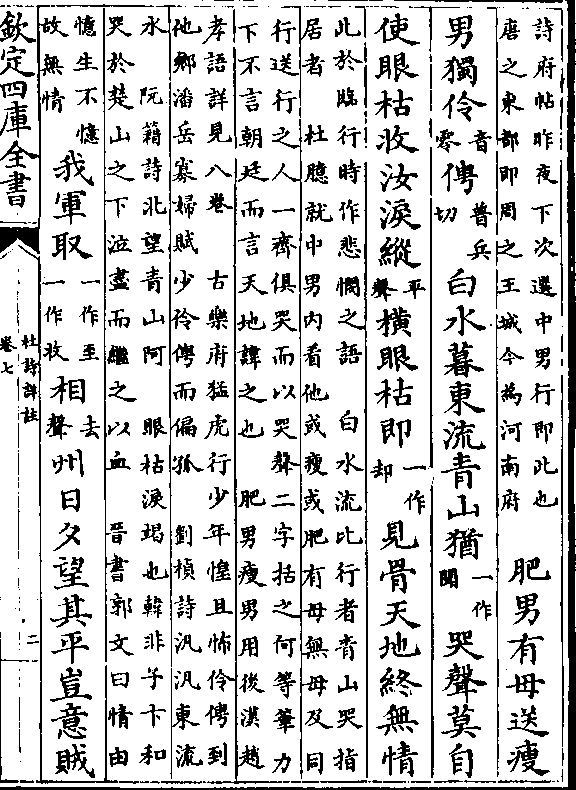 詩府帖昨夜下次選中男行即此也
唐之東都即周之王城今為河南府
肥男有母送瘦
男獨伶
音
零
俜
普兵
切
白水暮東流青山猶
一作
聞
哭聲莫自
使眼枯收汝淚縱
平
聲
橫眼枯即
一作
却
見骨天地終無情
此於臨行時作悲憫之語 白水流比行者青山哭指
居者 杜臆就中男内看他或瘦或肥有母無母及同
行送行之人一齊俱哭而以哭聲二字括之何等筆力
下不言朝廷而言天地諱之也 肥男瘦男用後漢趙
孝語詳見八卷 古樂府猛虎行少年惶且怖伶俜到
他鄉潘岳寡婦賦少伶俜而偏孤 劉楨詩汎汎東流
水 阮籍詩北望青山阿 眼枯淚竭也韓非子卞和
哭於楚山之下泣盡而繼之以血 晉書郭文曰情由
憶生不憶
故無情
我軍取
一作至
一作收
相
去
聲
州日夕望其平豈意賊
欽定四庫全書
杜詩詳註
卷七
二